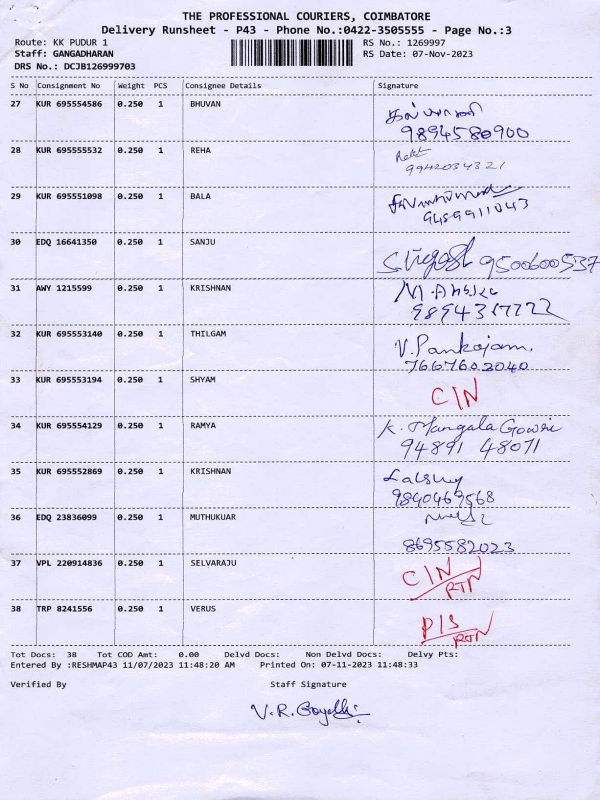 THE PROFESSIONAL COURIERS, COIMBATORE
Delivery Runsheet - P43 - Phone No.:0422-3505555 - Page No.:3
Route: KK PUDUR 1 RS No.: 1269997
Staff: GANGADHARAN RS Date: 07-Nov-2023
DRS No.: DCJB126999703
S No Consignment No Weight PCS Consignee Details Signature
27 KUR 695554586 0.250 1 BHUVAN
9894580900
28 KUR 695555532 0.250 1 REHA
9942034321
29 KUR 695551098 0.250 1 BALA
9489911043
30 EDQ 16641350 0.250 1 SANJU
9500600537
31 AWY 1215599 0.250 1 KRISHNAN
32 KUR 695553140 0.250 1 THILGAM V. Pankajam.
7667602040
33 KUR 695553194 0.250 1 SHYAM C/N
34 KUR 695554129 0.250 1 RAMYA K. Mangala Gowri
94891 48071
35 KUR 695552869 0.250 1 KRISHNAN
9840469568
36 EDQ 23836099 0.250 1 MUTHUKUAR
8695582023
37 VPL 220914836 0.250 1 SELVARAJU C/N
RTN
38 TRP 8241556 0.250 1 VERUS D/S
RTN
Tot Docs: 38 Tot COD Amt: 0.00 Delvd Docs: Non Delvd Docs: Delvy Pts:
Entered By :RESHMAP43 11/07/2023 11:48:20 AM Printed On: 07-11-2023 11:48:33
Verified By Staff Signature